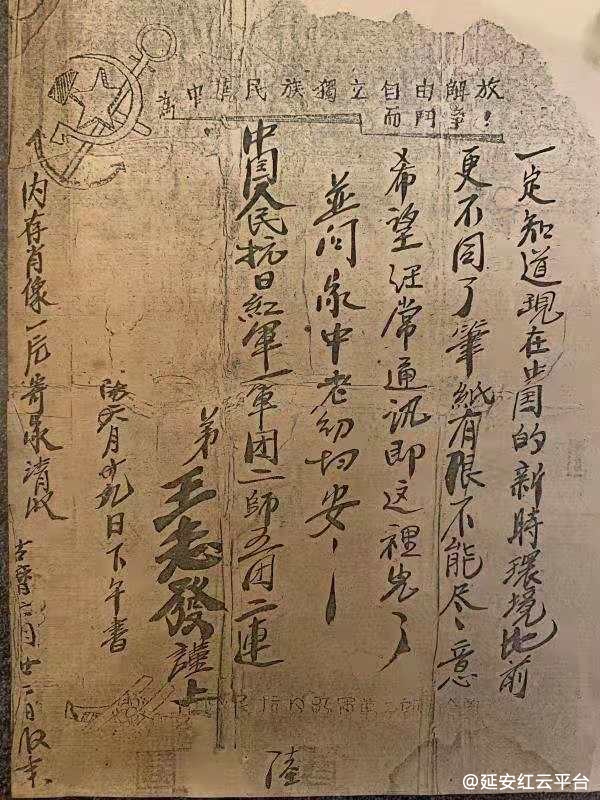 為中华民族獨立自由解放
而鬥爭！
一定知道現在中国的新時環境比前
更不同了筆紙有限不能尽意
希望经常通讯即这裡先了
並问家中老幼均安
中国人民抗日紅軍一軍团二師五团二連
弟 王志發 謹上
月 九日下午書
内存肖像一 寄家清收
古曆 月廿 日收末
陸
@延安红云平台